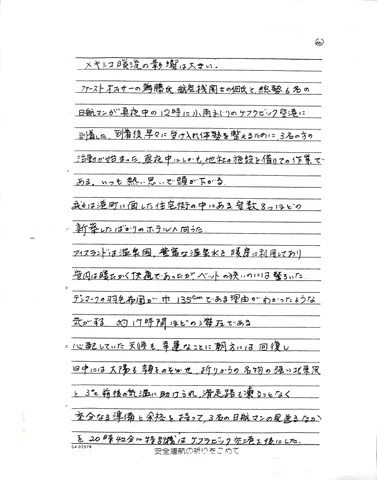 メキシコ暖流の影響は大きい.
ファーストオフサーの 氏, 航空機関士の 氏と, 総勢6名の
日航マンが真夜中の12時に小雨まじりのケフラビック空港に
到着した. 到着後早々に受け入れ体勢を整えるために, 3名の方の
活動が始まった. 真夜中にしかも他社の施設を借りての作業で
ある. いつも熱い思いで頭が下がる.
は港町に面した住宅街の中にある室数8つほどの
新築したばかりのホテルへ向う.
アイスランドは温泉国, 豊富な温泉水を暖房に利用しており
室内は暖かく快適であったがベットの狭いのには驚いた.
デンマークの羽毛布団が巾135cmである理由がわかったような
気がする 約17時間ほどの滞在である
心配していた天候も幸運なことに朝方には回復し
日中には太陽も顔をのぞかせ, 折りからの名物の強い北東風
と3℃前後の気温に助けられ, 滑走路も凍ることなく
充分なる準備と余裕を持って, 3名の日航マンの見送るなか
を20時42分に特別機はケフラビック空港を後にした.
安全運航の祈りをこめて